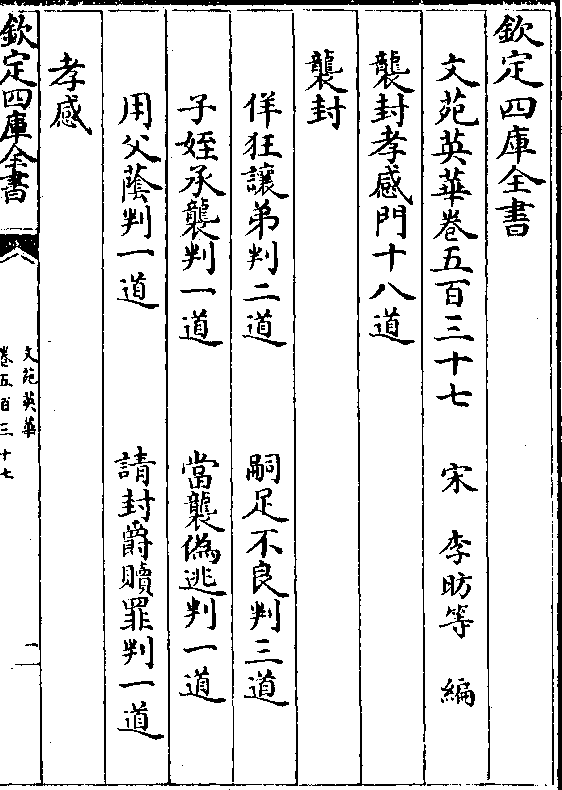 欽定四庫全書
文苑英華卷五百三十七　宋　李昉等　編
襲封孝感門十八道
襲封
佯狂讓弟判二道　嗣足不良判三道
子姪承襲判一道　當襲偽逃判一道
用父蔭判一道　請封爵贖罪判一道
孝感
欽定四庫全書
文苑英華
卷五百三十七
一